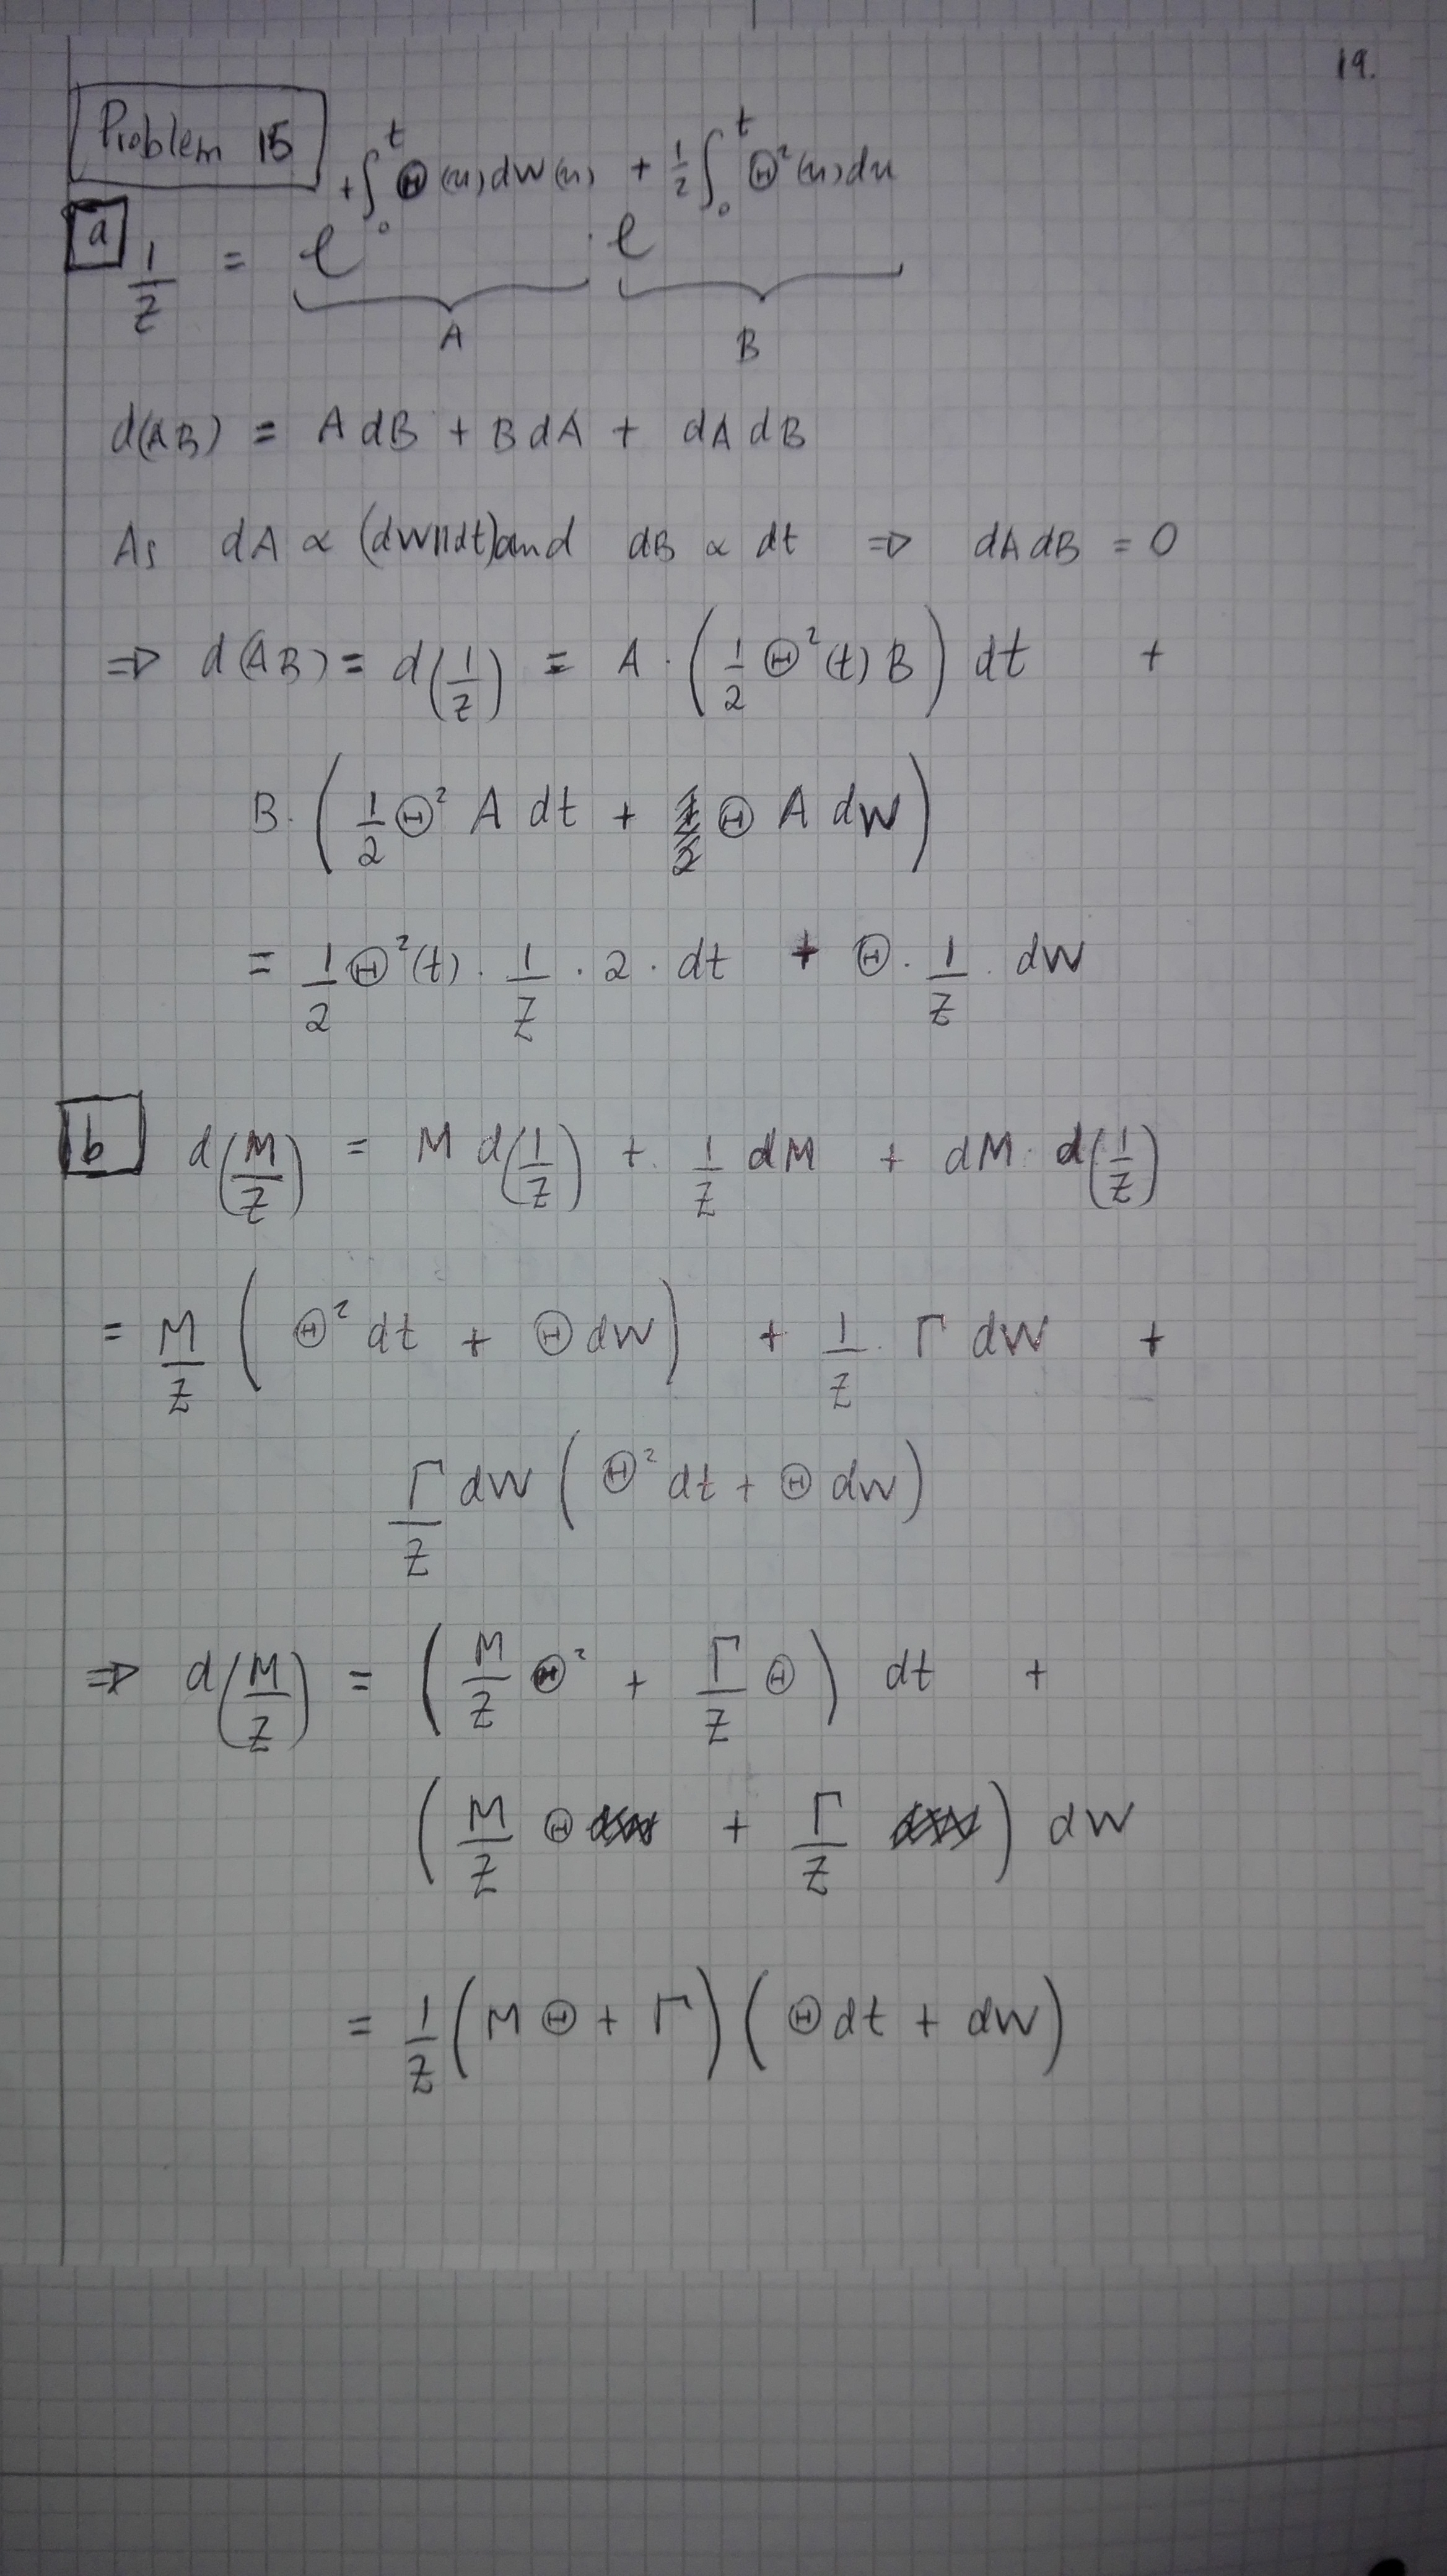 19.
Problem 15
a 1/Z = e^{+∫_0^t Θ(u)dW(u)} · e^{+ 1/2 ∫_0^t Θ²(u)du}
A B
d(AB) = A dB + B dA + dA dB
As dA ∝ (dW,dt) and dB ∝ dt ⇒ dA dB = 0
⇒ d(AB) = d(1/Z) = A · (1/2 Θ²(t) B) dt +
B · (1/2 Θ² A dt + Θ A dW)
= 1/2 Θ²(t) · 1/Z · 2 · dt + Θ · 1/Z · dW
b d(M/Z) = M d(1/Z) + 1/Z dM + dM · d(1/Z)
= M/Z (Θ² dt + Θ dW) + 1/Z · Γ dW +
Γ/Z dW (Θ² dt + Θ dW)
⇒ d(M/Z) = (M/Z Θ² + Γ/Z Θ) dt +
(M/Z Θ + Γ/Z) dW
= 1/Z (M Θ + Γ) (Θ dt + dW)